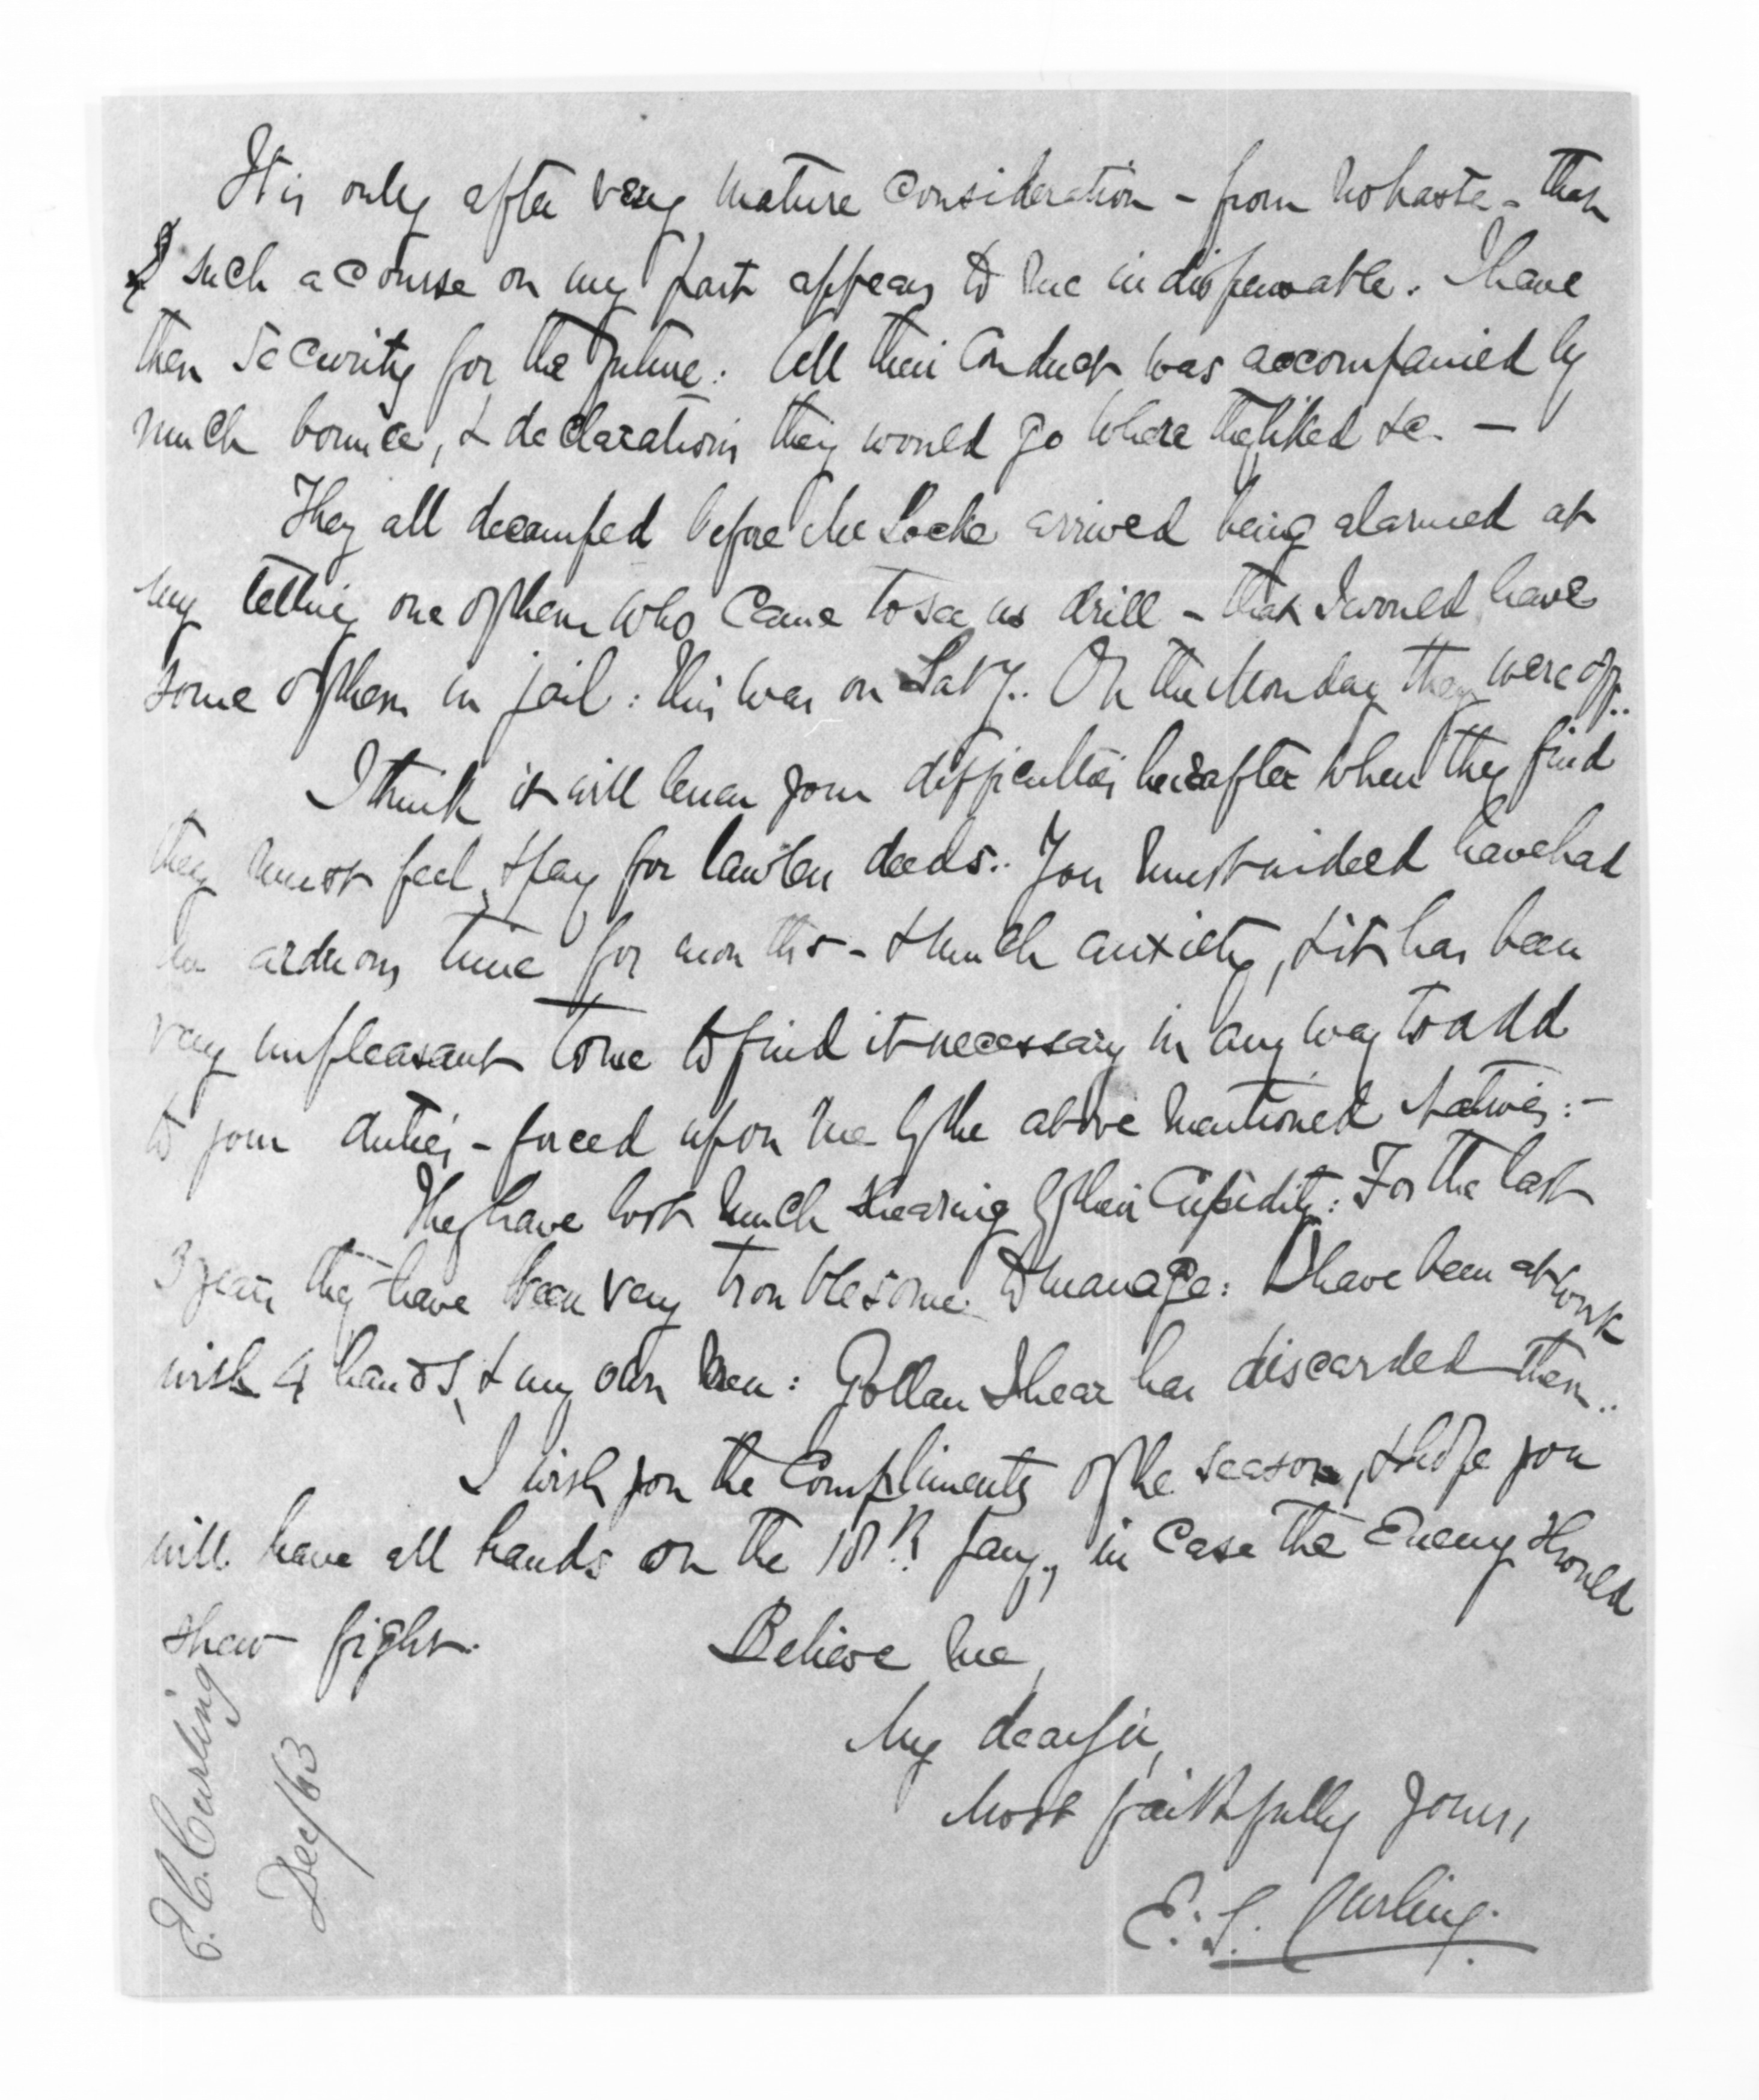 It is only after very mature consideration - from no haste - that
such a course on my part appears to me indispensable. I have
then security for the future: All their conduct was accompanied by
much bounce, & declarations they would go where they liked &c. -
They all decamped before Mr Locke arrived being alarmed at
my telling one of them who came to see us drill - that I would have
some of them in jail: this was on Saty.. On the Monday they were off..
I think it will lessen your difficulties hereafter when they find
they must feel, & pay for lawless deeds.. You must indeed have had
an arduous time for months - & much anxiety, & it has been
very unpleasant to me to find it necessary in any way to add
to your duties, - forced upon me by the above mentioned Natives: -
They have lost much shearing by their Cupidity: For the last
3 years they have been very troublesome to manage: I have been at work
with 4 hands, & my own men: Gollan I hear has discarded them..
I wish you the Compliments of the season, & hope you
will have all hands on the 18th Jany., in case the Enemy should
shew fight.
Believe me,
My dear Sir,
Most faithfully yours,
E. S. Curling.
E. C. Curling
Dec/63